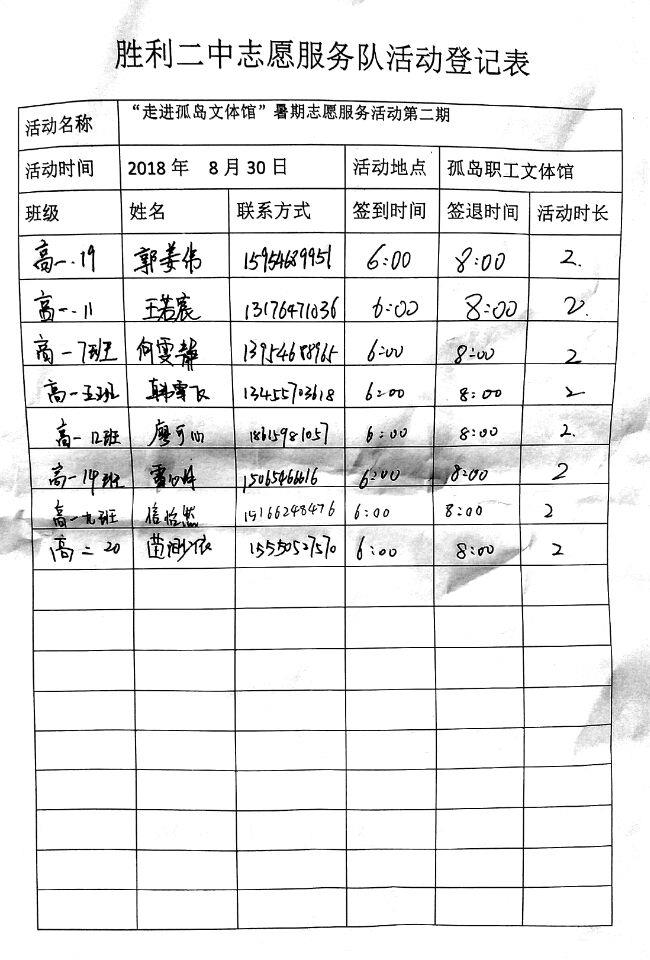 胜利二中志愿服务队活动登记表
活动名称 “走进孤岛文体馆”暑期志愿服务活动第二期
活动时间 2018 年 8 月 30 日 活动地点 孤岛职工文体馆
班级 姓名 联系方式 签到时间 签退时间 活动时长
高一.19 郭姜伟 15954689951 6:00 8:00 2.
高一.11 王若宸 13176471036 6:00 8:00 2.
高一7班 何雯静 13954688965 6:00 8:00 2
高一五班 韩雪飞 13455703618 6:00 8:00 2
高一12班 廖可心 18615981057 6:00 8:00 2.
高一14班 15065466616 6:00 8:00 2
高一九班 信怡然 15166248476 6:00 8:00 2
高二20 苗 15550527570 6:00 8:00 2